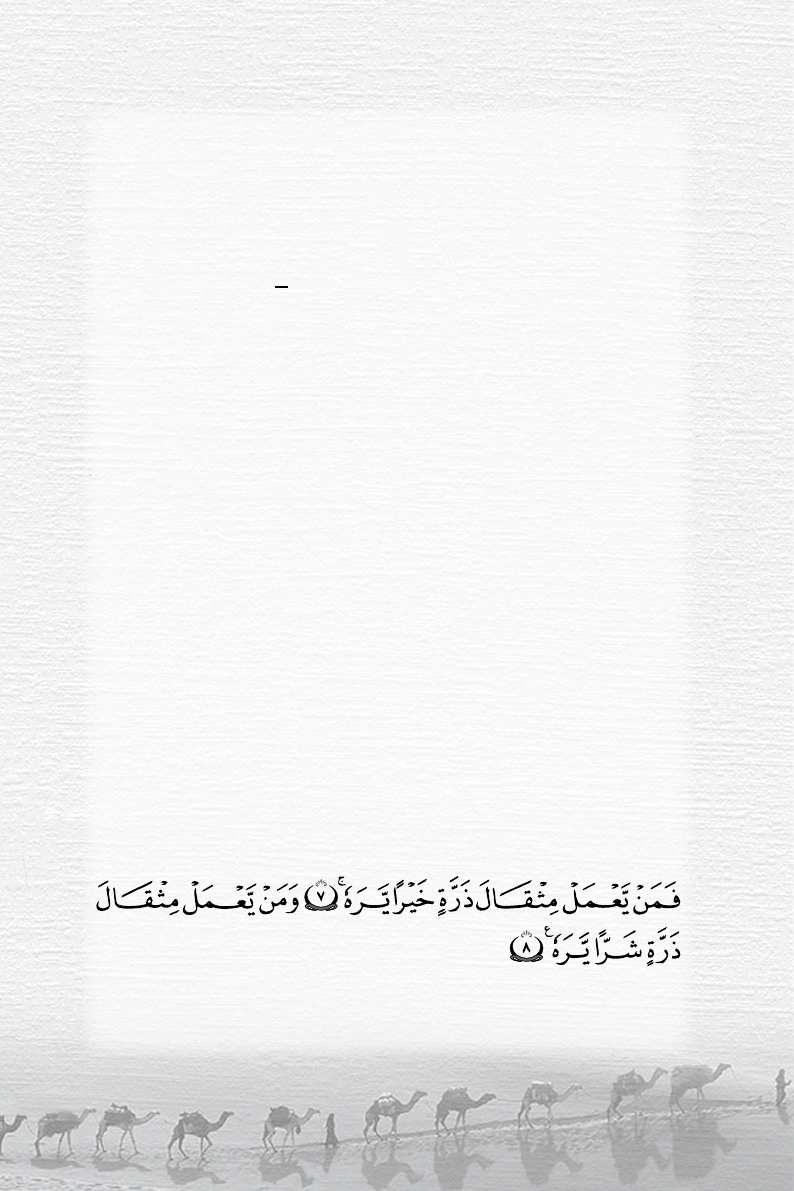 –
فَمَنْ يَّعْمَلْ مِثْقَالَ ذَرَّةٍ خَيْرًا يَّرَهٗ ۚ ﴿٧﴾ وَمَنْ يَّعْمَلْ مِثْقَالَ
ذَرَّةٍ شَرًّا يَّرَهٗ ﴿٨﴾ ع